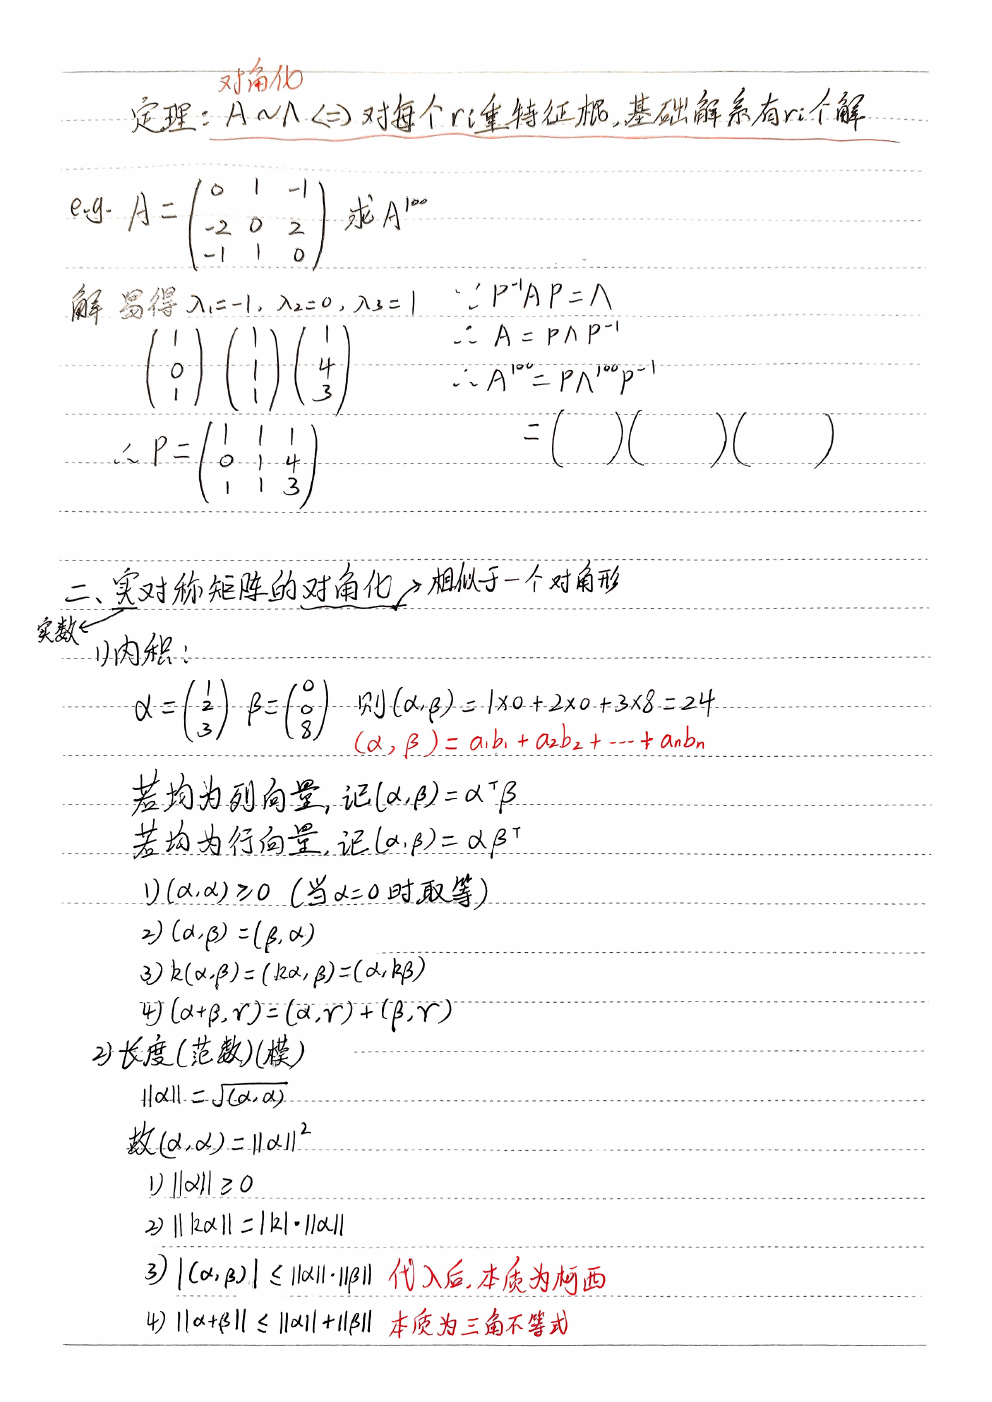 对角化
定理：A~Λ <=> 对每个ri重特征根，基础解系有ri个解
e.g. A = (0 1 -1
-2 0 2
-1 1 0) 求A¹⁰⁰
解 易得 λ₁=-1, λ₂=0, λ₃=1 ∵ P⁻¹AP=Λ
(1 0 1) (1 1 1) (1 4 3) ∴ A = PΛP⁻¹
∴ A¹⁰⁰ = PΛ¹⁰⁰P⁻¹
= ( )( )( )
∴ P = (1 1 1
0 1 4
1 1 3)
二、实对称矩阵的对角化 → 相似于一个对角形
实数 ←
1)内积：
α = (1 2 3) β = (0 0 8) 则(α,β) = 1×0+2×0+3×8 = 24
(α,β) = a₁b₁ + a₂b₂ + ··· + aₙbₙ
若均为列向量，记(α,β) = αᵀβ
若均为行向量，记(α,β) = αβᵀ
1) (α,α) ≥ 0 (当α=0时取等)
2) (α,β) = (β,α)
3) k(α,β) = (kα,β) = (α,kβ)
4) (α+β,γ) = (α,γ) + (β,γ)
2) 长度(范数)(模)
||α|| = √(α,α)
故(α,α) = ||α||²
1) ||α|| ≥ 0
2) ||kα|| = |k|·||α||
3) |(α,β)| ≤ ||α||·||β|| 代入后，本质为柯西
4) ||α+β|| ≤ ||α||+||β|| 本质为三角不等式